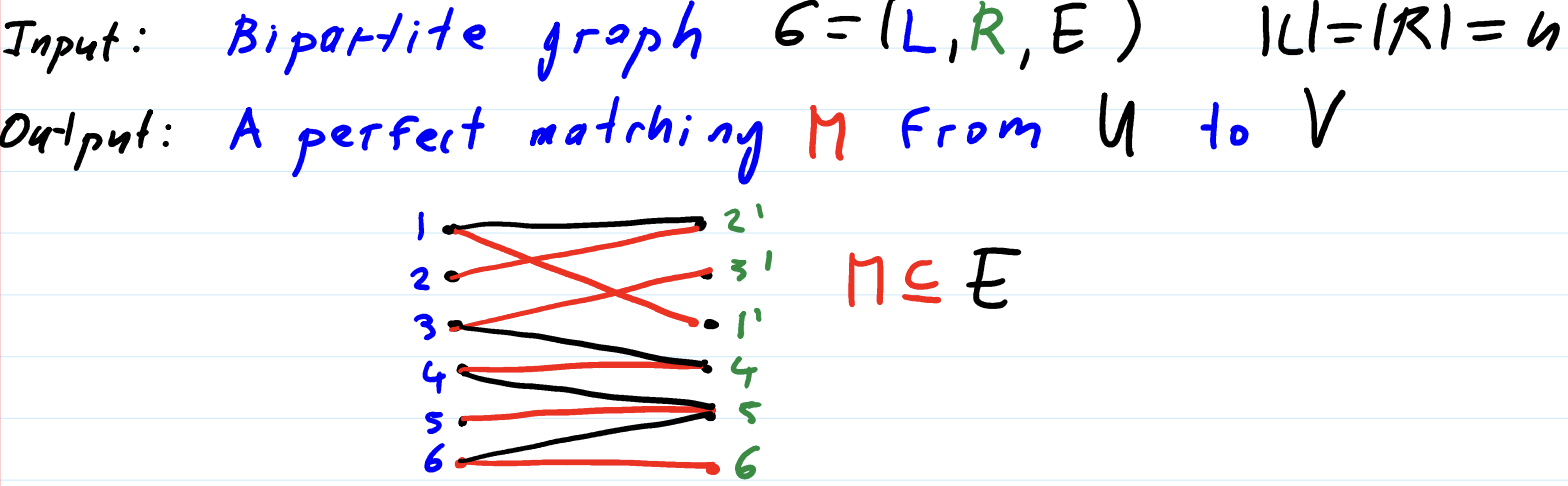 Input: Bipartite graph G = (L, R, E) |L| = |R| = n
Output: A perfect matching M from U to V
1 2'
2 3'
M ⊆ E
3 1'
4 4
5 5
6 6